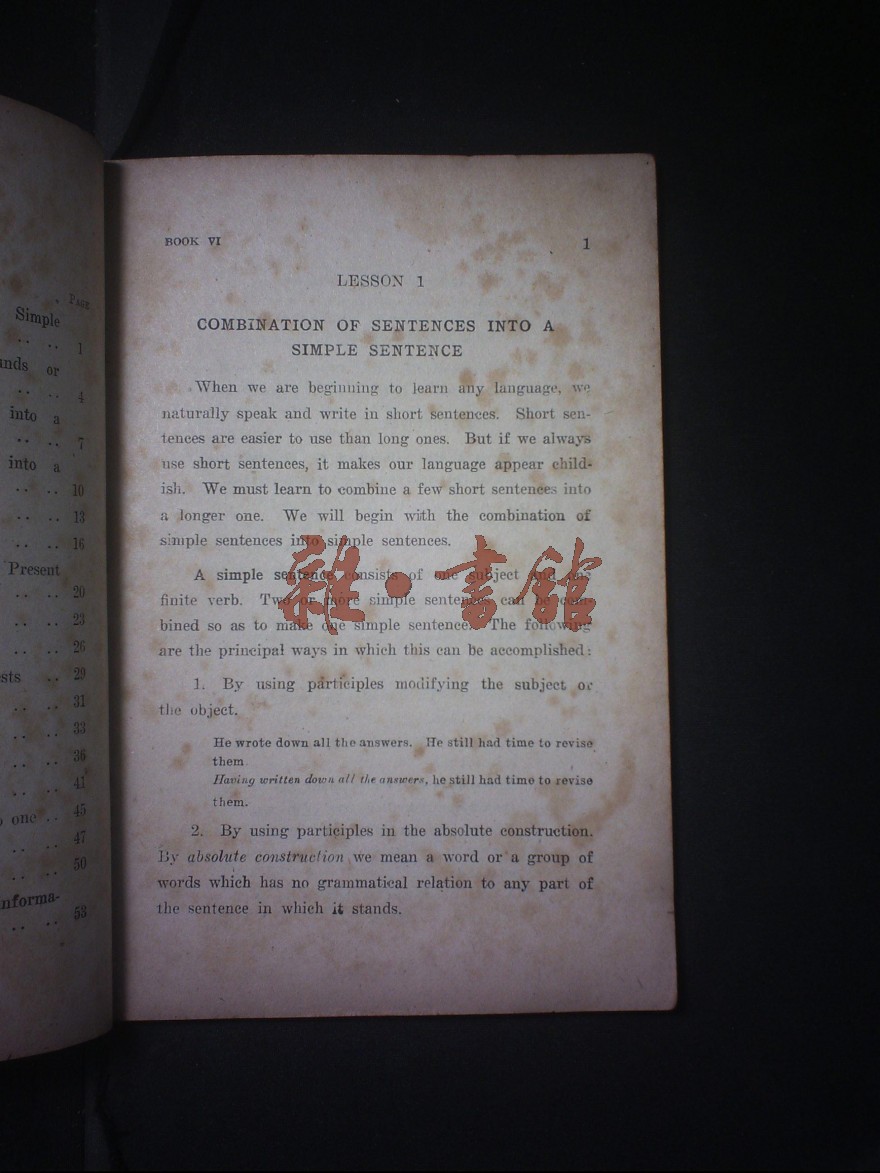 Page
Simple
.. .. 1
or
.. .. 4
into a
.. .. 7
into a
.. .. 10
.. .. 13
.. .. 16
Present
.. .. 20
.. .. 23
.. .. 26
.. 29
.. .. 31
.. .. 33
.. .. 36
.. .. 41
one .. 45
.. .. 47
.. .. 50
.. .. 53
BOOK VI 1
LESSON 1
COMBINATION OF SENTENCES INTO A
SIMPLE SENTENCE
When we are beginning to learn any language, we
naturally speak and write in short sentences. Short sen-
tences are easier to use than long ones. But if we always
use short sentences, it makes our language appear child-
ish. We must learn to combine a few short sentences into
a longer one. We will begin with the combination of
simple sentences into simple sentences.
A simple sentence consists of one subject and one
finite verb. Two or more simple sentences can be com-
bined so as to make one simple sentence. The following
are the principal ways in which this can be accomplished:
1. By using participles modifying the subject or
the object.
He wrote down all the answers. He still had time to revise
them.
Having written down all the answers, he still had time to revise
them.
2. By using participles in the absolute construction.
By absolute construction we mean a word or a group of
words which has no grammatical relation to any part of
the sentence in which it stands.
雜·書館